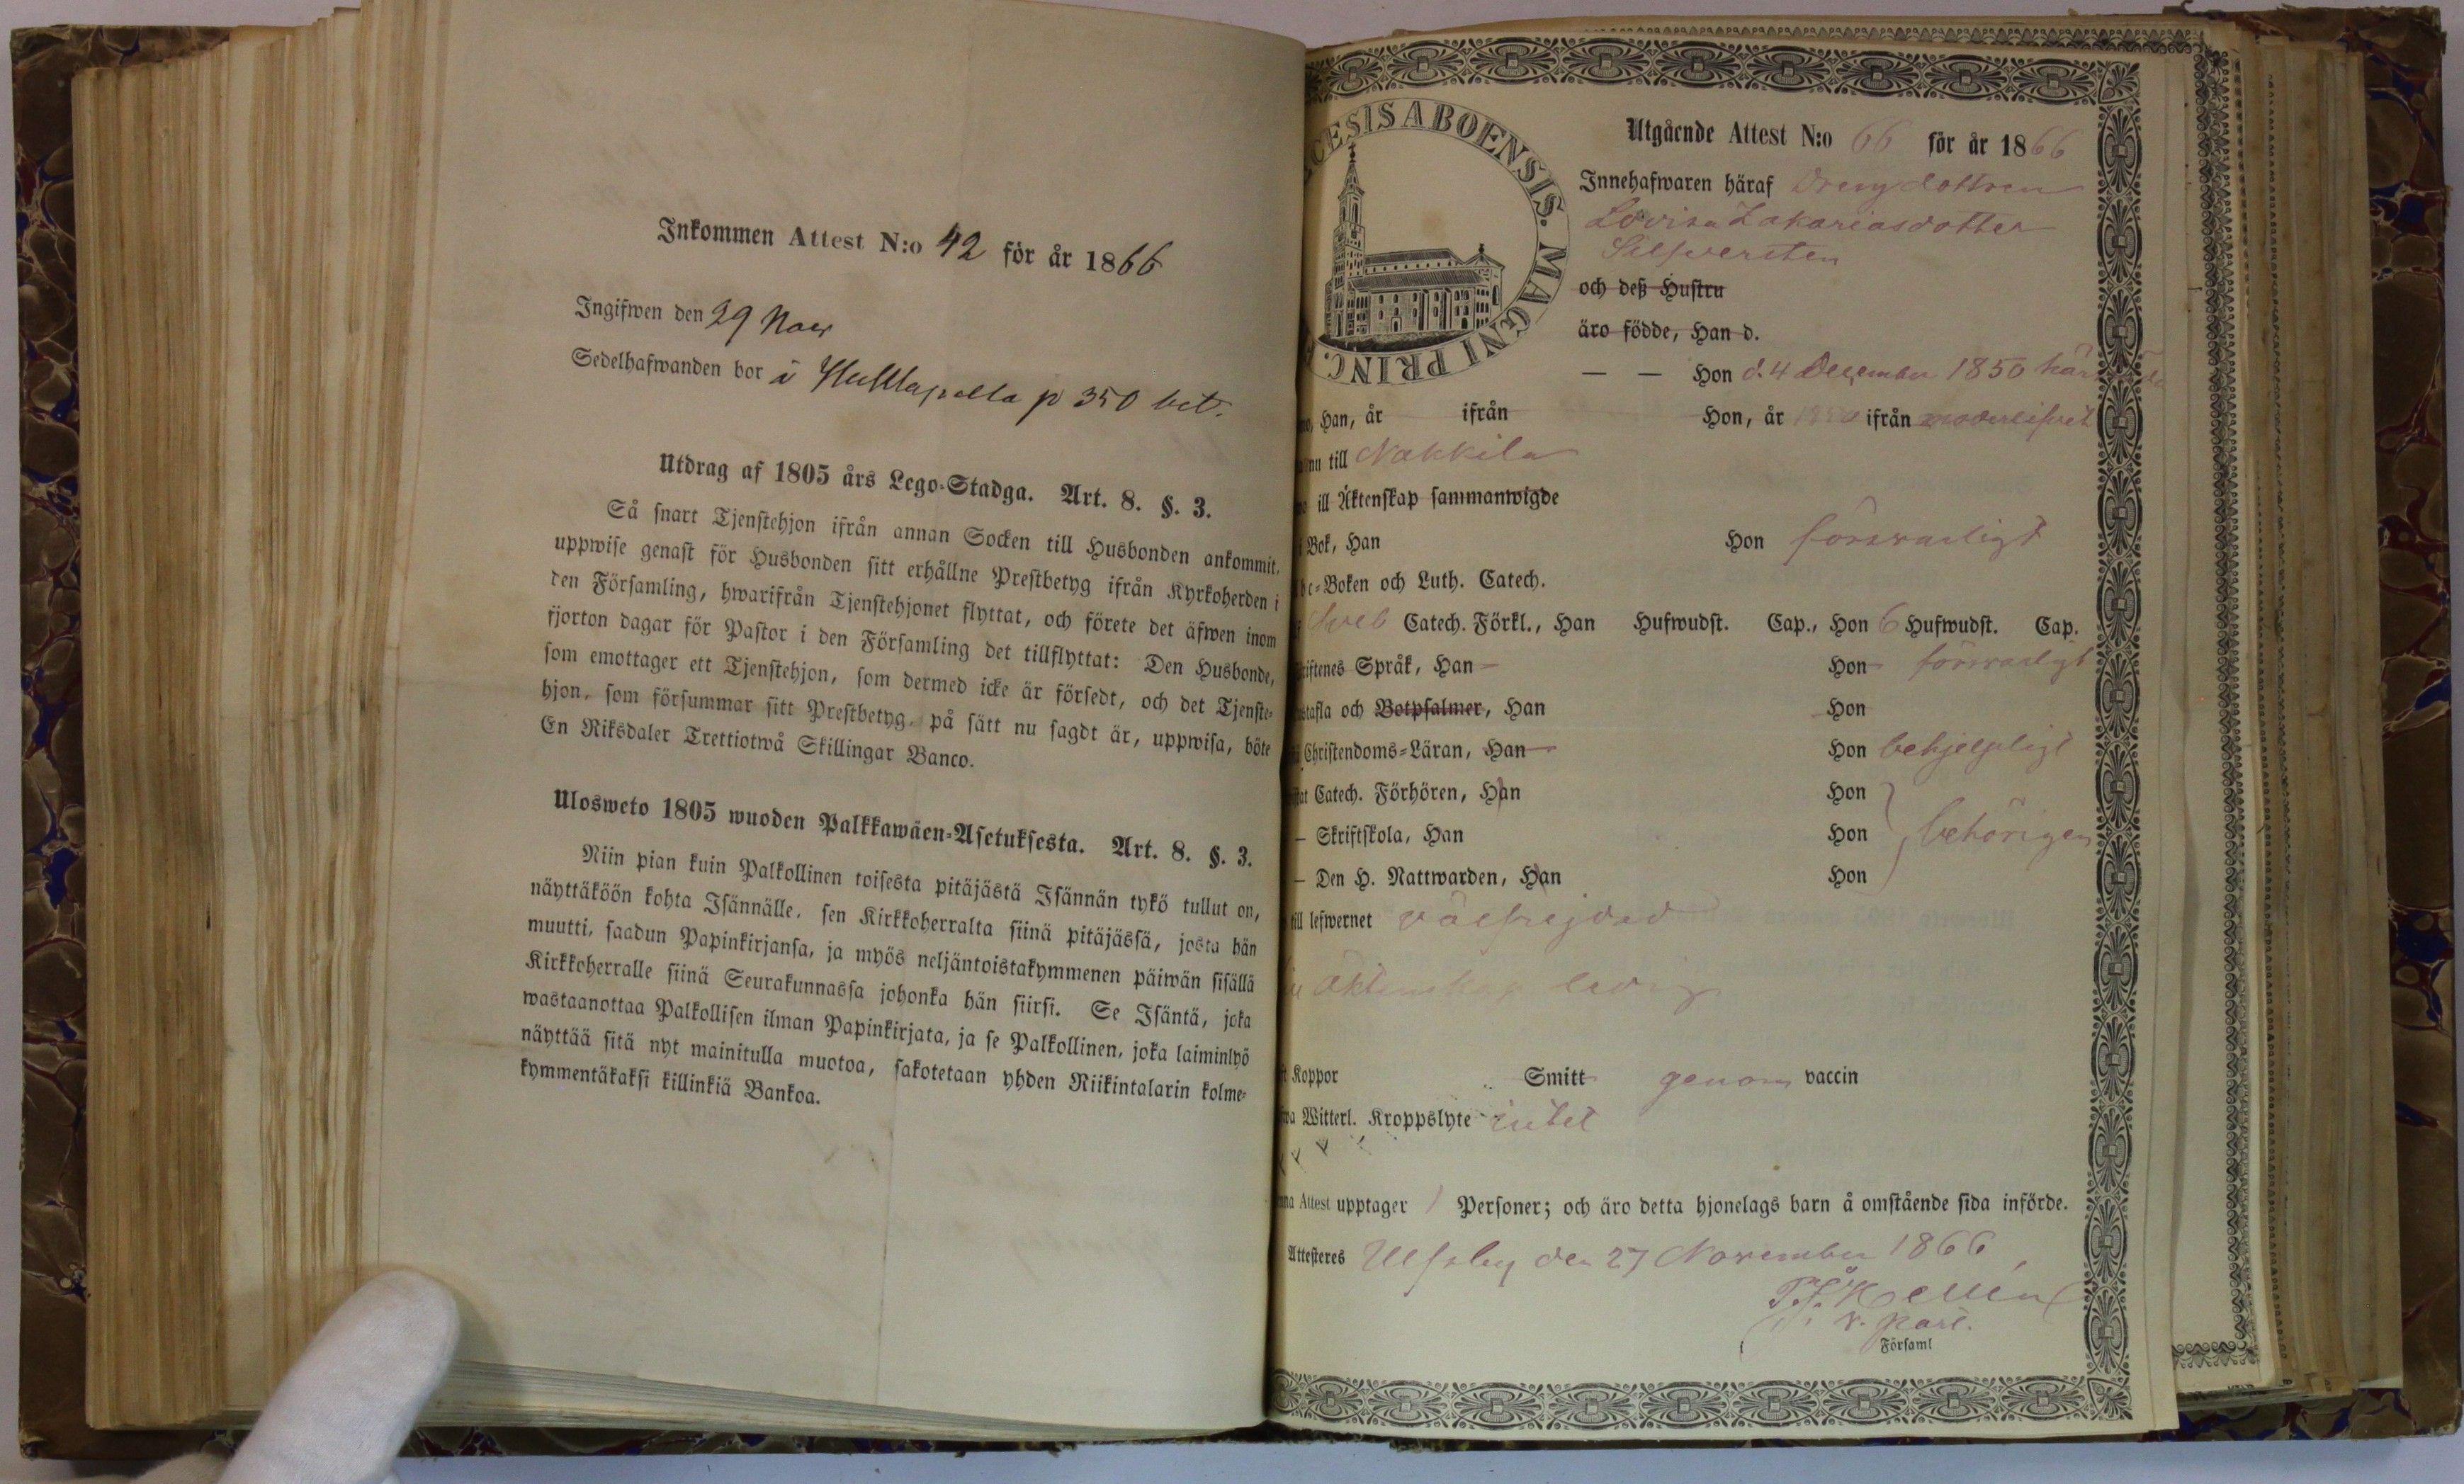 Inkommen Attest N:o 42 för år 1866
Ingifwen den 29 Nov
Sedelhafwanden bor å p 350 bet.
Utdrag af 1805 års Lego-Stadga. Art. 8. §. 3.
Så snart Tjenstehjon ifrån annan Socken till Husbonden ankommit,
uppwise genast för Husbonden sitt erhållne Prestbetyg ifrån Kyrkoherden i
den Församling, hwarifrån Tjenstehjonet flyttat, och förete det äfwen inom
fjorton dagar för Pastor i den Församling det tillflyttat: Den Husbonde,
som emottager ett Tjenstehjon, som dermed icke är försedt, och det Tjenste-
hjon, som försummar sitt Prestbetyg, på sätt nu sagdt är, uppwisa, böte
En Riksdaler Trettiotwå Skillingar Banco.
Ulosweto 1805 wuoden Palkkawäen-Asetuksesta. Art. 8. §. 3.
Niin pian kuin Palkollinen toisesta pitäjästä Isännän tykö tullut on,
näyttäköön kohta Isännälle, sen Kirkkoherralta siinä pitäjässä, josta hän
muutti, saadun Papinkirjansa, ja myös neljäntoistakymmenen päiwän sisällä
Kirkkoherralle siinä Seurakunnassa johonka hän siirsi. Se Isäntä, joka
wastaanottaa Palkollisen ilman Papinkirjata, ja se Palkollinen, joka laiminlyö
näyttää sitä nyt mainitulla muotoa, sakotetaan yhden Riikintalarin kolme-
kymmentäkaksi killinkiä Bankoa.
CESIS ABOENSIS. MAGNI PRINC.
Utgående Attest N:o 66 för år 1866
Innehafwaren häraf Drengdottren
Lovisa Zakariasdotter
Silfversten
och deß Hustru
äro födde, Han d.
— — Hon d. 4 December 1850 här
Han, år ifrån Hon, år 1850 ifrån moderlifvet
nu till Nakkila
ill Äktenskap sammanwigde
Bok, Han Hon försvarligt
bc-Boken och Luth. Catech.
Sveb Catech. Förkl., Han Hufwudst. Cap., Hon 6 Hufwudst. Cap.
riftenes Språk, Han Hon försvarligt
stafla och Botpsalmer, Han Hon
Christendoms-Läran, Han Hon behjelpligt
at Catech. Förhören, Han Hon
– Skriftskola, Han Hon behörigen
– Den H. Nattwarden, Han Hon
till lefwernet välfrejdad
äktenskap ledig
Koppor Smitt genom vaccin
wa Witterl. Kroppslyte intet
na Attest upptager 1 Personer; och äro detta hjonelags barn å omstående sida införde.
Attesteres Ulfsby den 27 November 1866
Kellén
v. past.
Församl